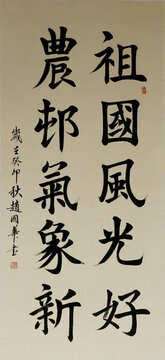 祖國風光好
農邨氣象新
歲在癸卯秋趙國華書